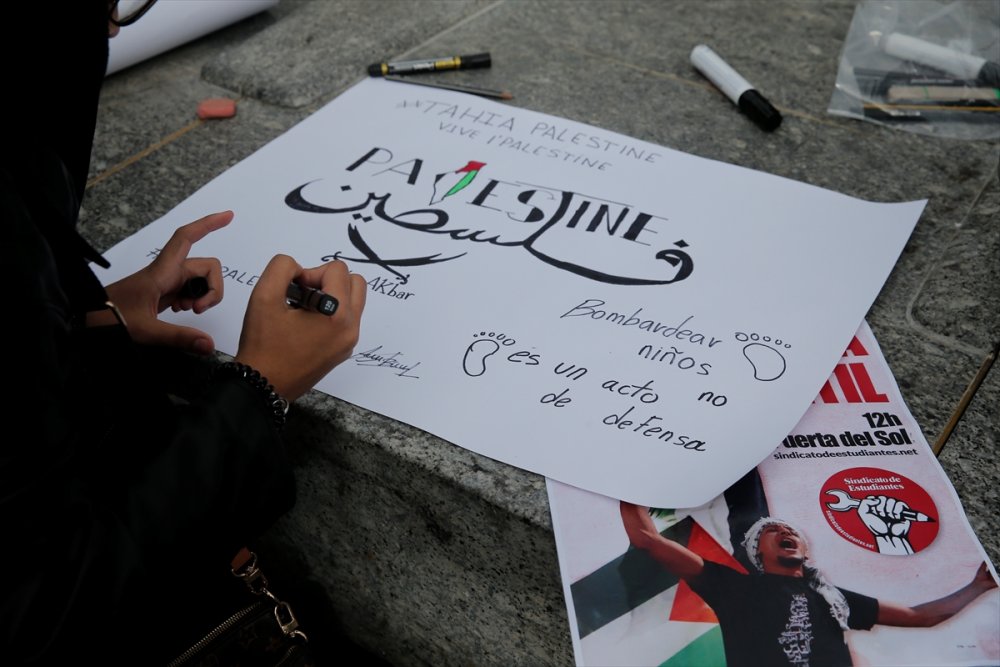 TAHIA PALESTINE
VIVE l'PALESTINE
PALESTINE
فلسطين
PALE
AKbar
Bombardear
niños
no
és un acto
de defensa
12h
uerta del Sol
sindicatodeestudiantes.net
Sindicato de
Estudiantes